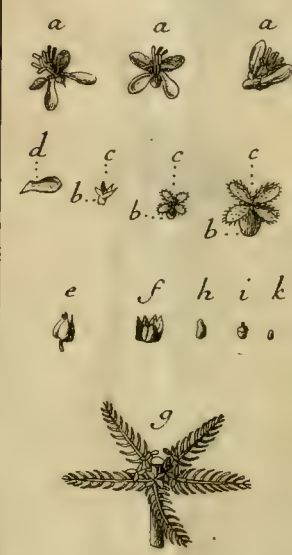 a a a
d c c c
b b b
e f h i k
g